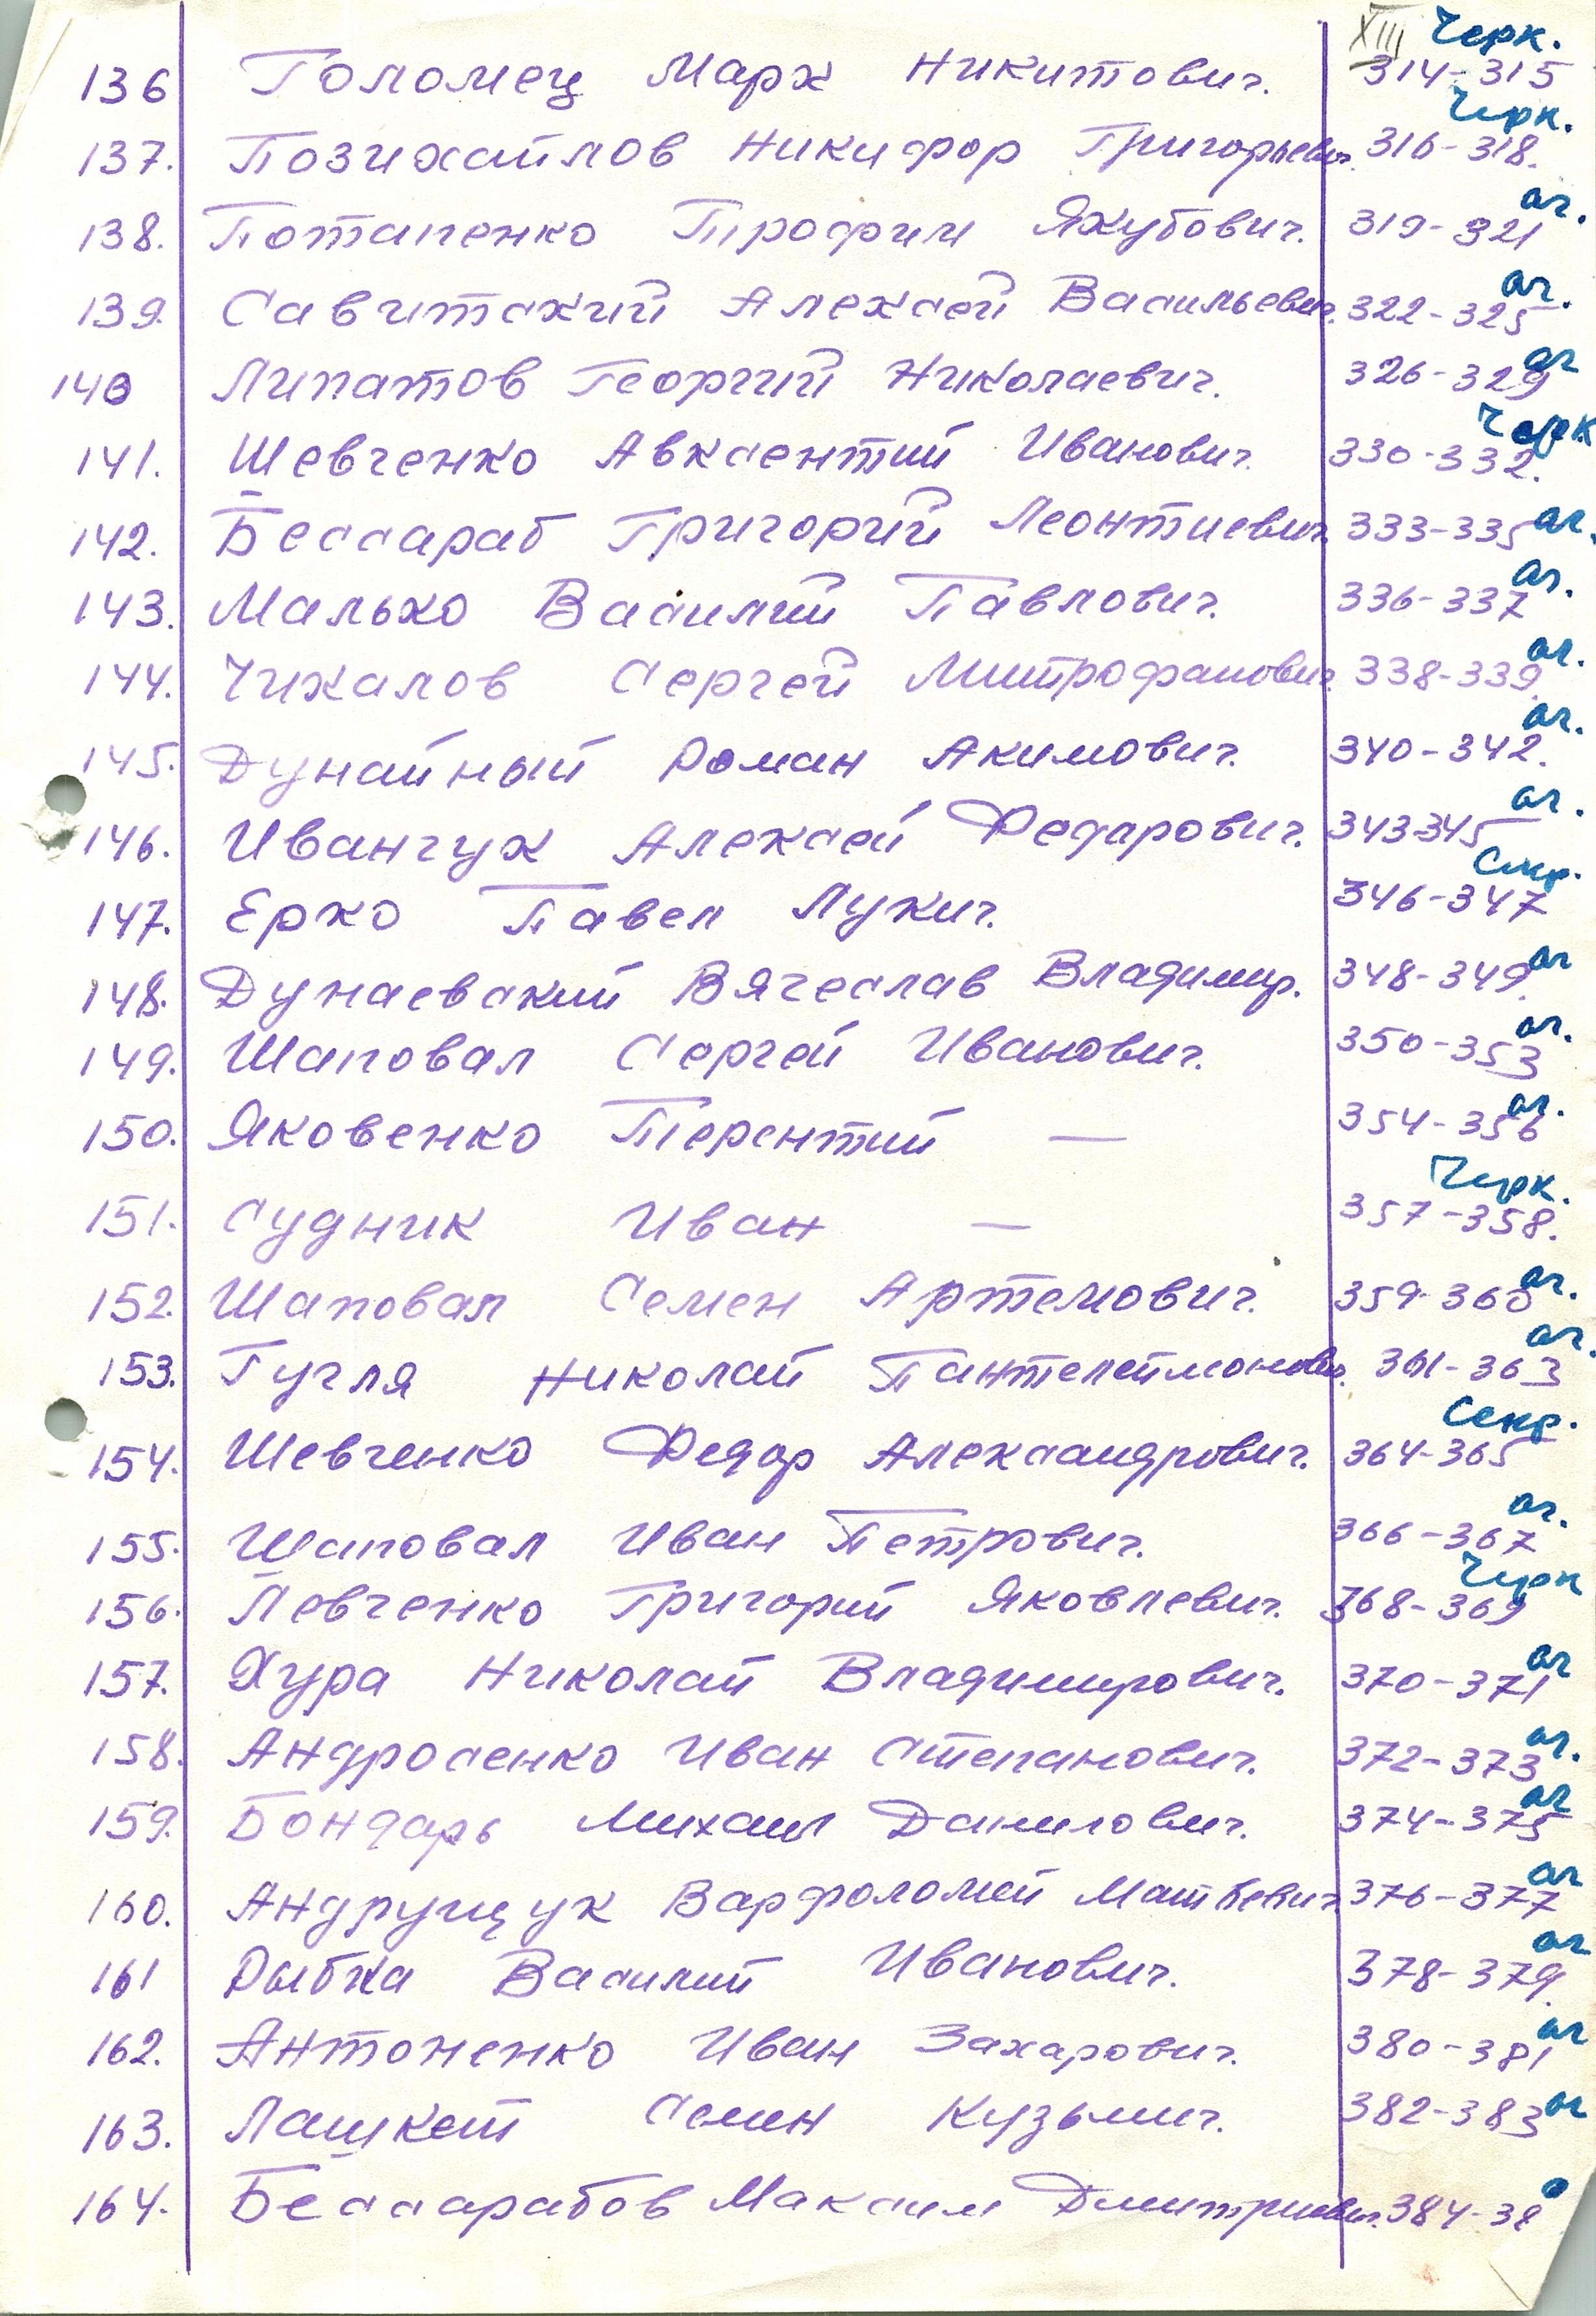 XIII Черк.
136 Голомец Марк Никитович. 314-315
Черк.
137. Позихайлов Никифор Григорьевич. 316-318.
аг.
138. Потапенко Трофим Якубович. 319-321
аг.
139. Савитский Алексей Васильевич. 322-325
аг
140 Липатов Георгий Николаевич. 326-329
Черк
141. Шевченко Авксентий Иванович. 330-332.
142. Бессараб Григорий Леонтиевич 333-335 аг.
аг.
143. Малько Василий Павлович. 336-337
аг.
144. Чикалов Сергей Митрофанович. 338-339.
аг.
145. Дунайный Роман Акимович. 340-342.
аг.
146. Иванчук Алексей Федарович. 343-345
Секр.
147. Ерко Павел Лукич. 346-347
аг
148. Дунаевский Вячеслав Владимир. 348-349.
аг.
149. Шаповал Сергей Иванович. 350-353
аг.
150. Яковенко Терентий — 354-356
Черк.
151. Судник Иван — 357-358.
аг.
152. Шаповал Семен Артемович. 359-360
аг.
153. Гугля Николай Пантелеймонович. 361-363
Секр.
154. Шевченко Федор Александрович. 364-365
аг.
155. Шаповал Иван Петрович. 366-367
Черк
156. Левченко Григорий Яковлевич. 368-369
аг
157. Хура Николай Владимирович. 370-371
аг.
158. Андросенко Иван Степанович. 372-373
аг
159. Бондарь Михаил Данилович. 374-375
аг
160. Андрущук Варфоломей Матвевич 376-377
аг
161 Рыбка Василий Иванович. 378-379.
аг
162. Антоненко Иван Захарович. 380-381
163. Лашкет Семен Кузьмич. 382-383 аг
164. Бессарабов Максим Дмитриевич. 384-38